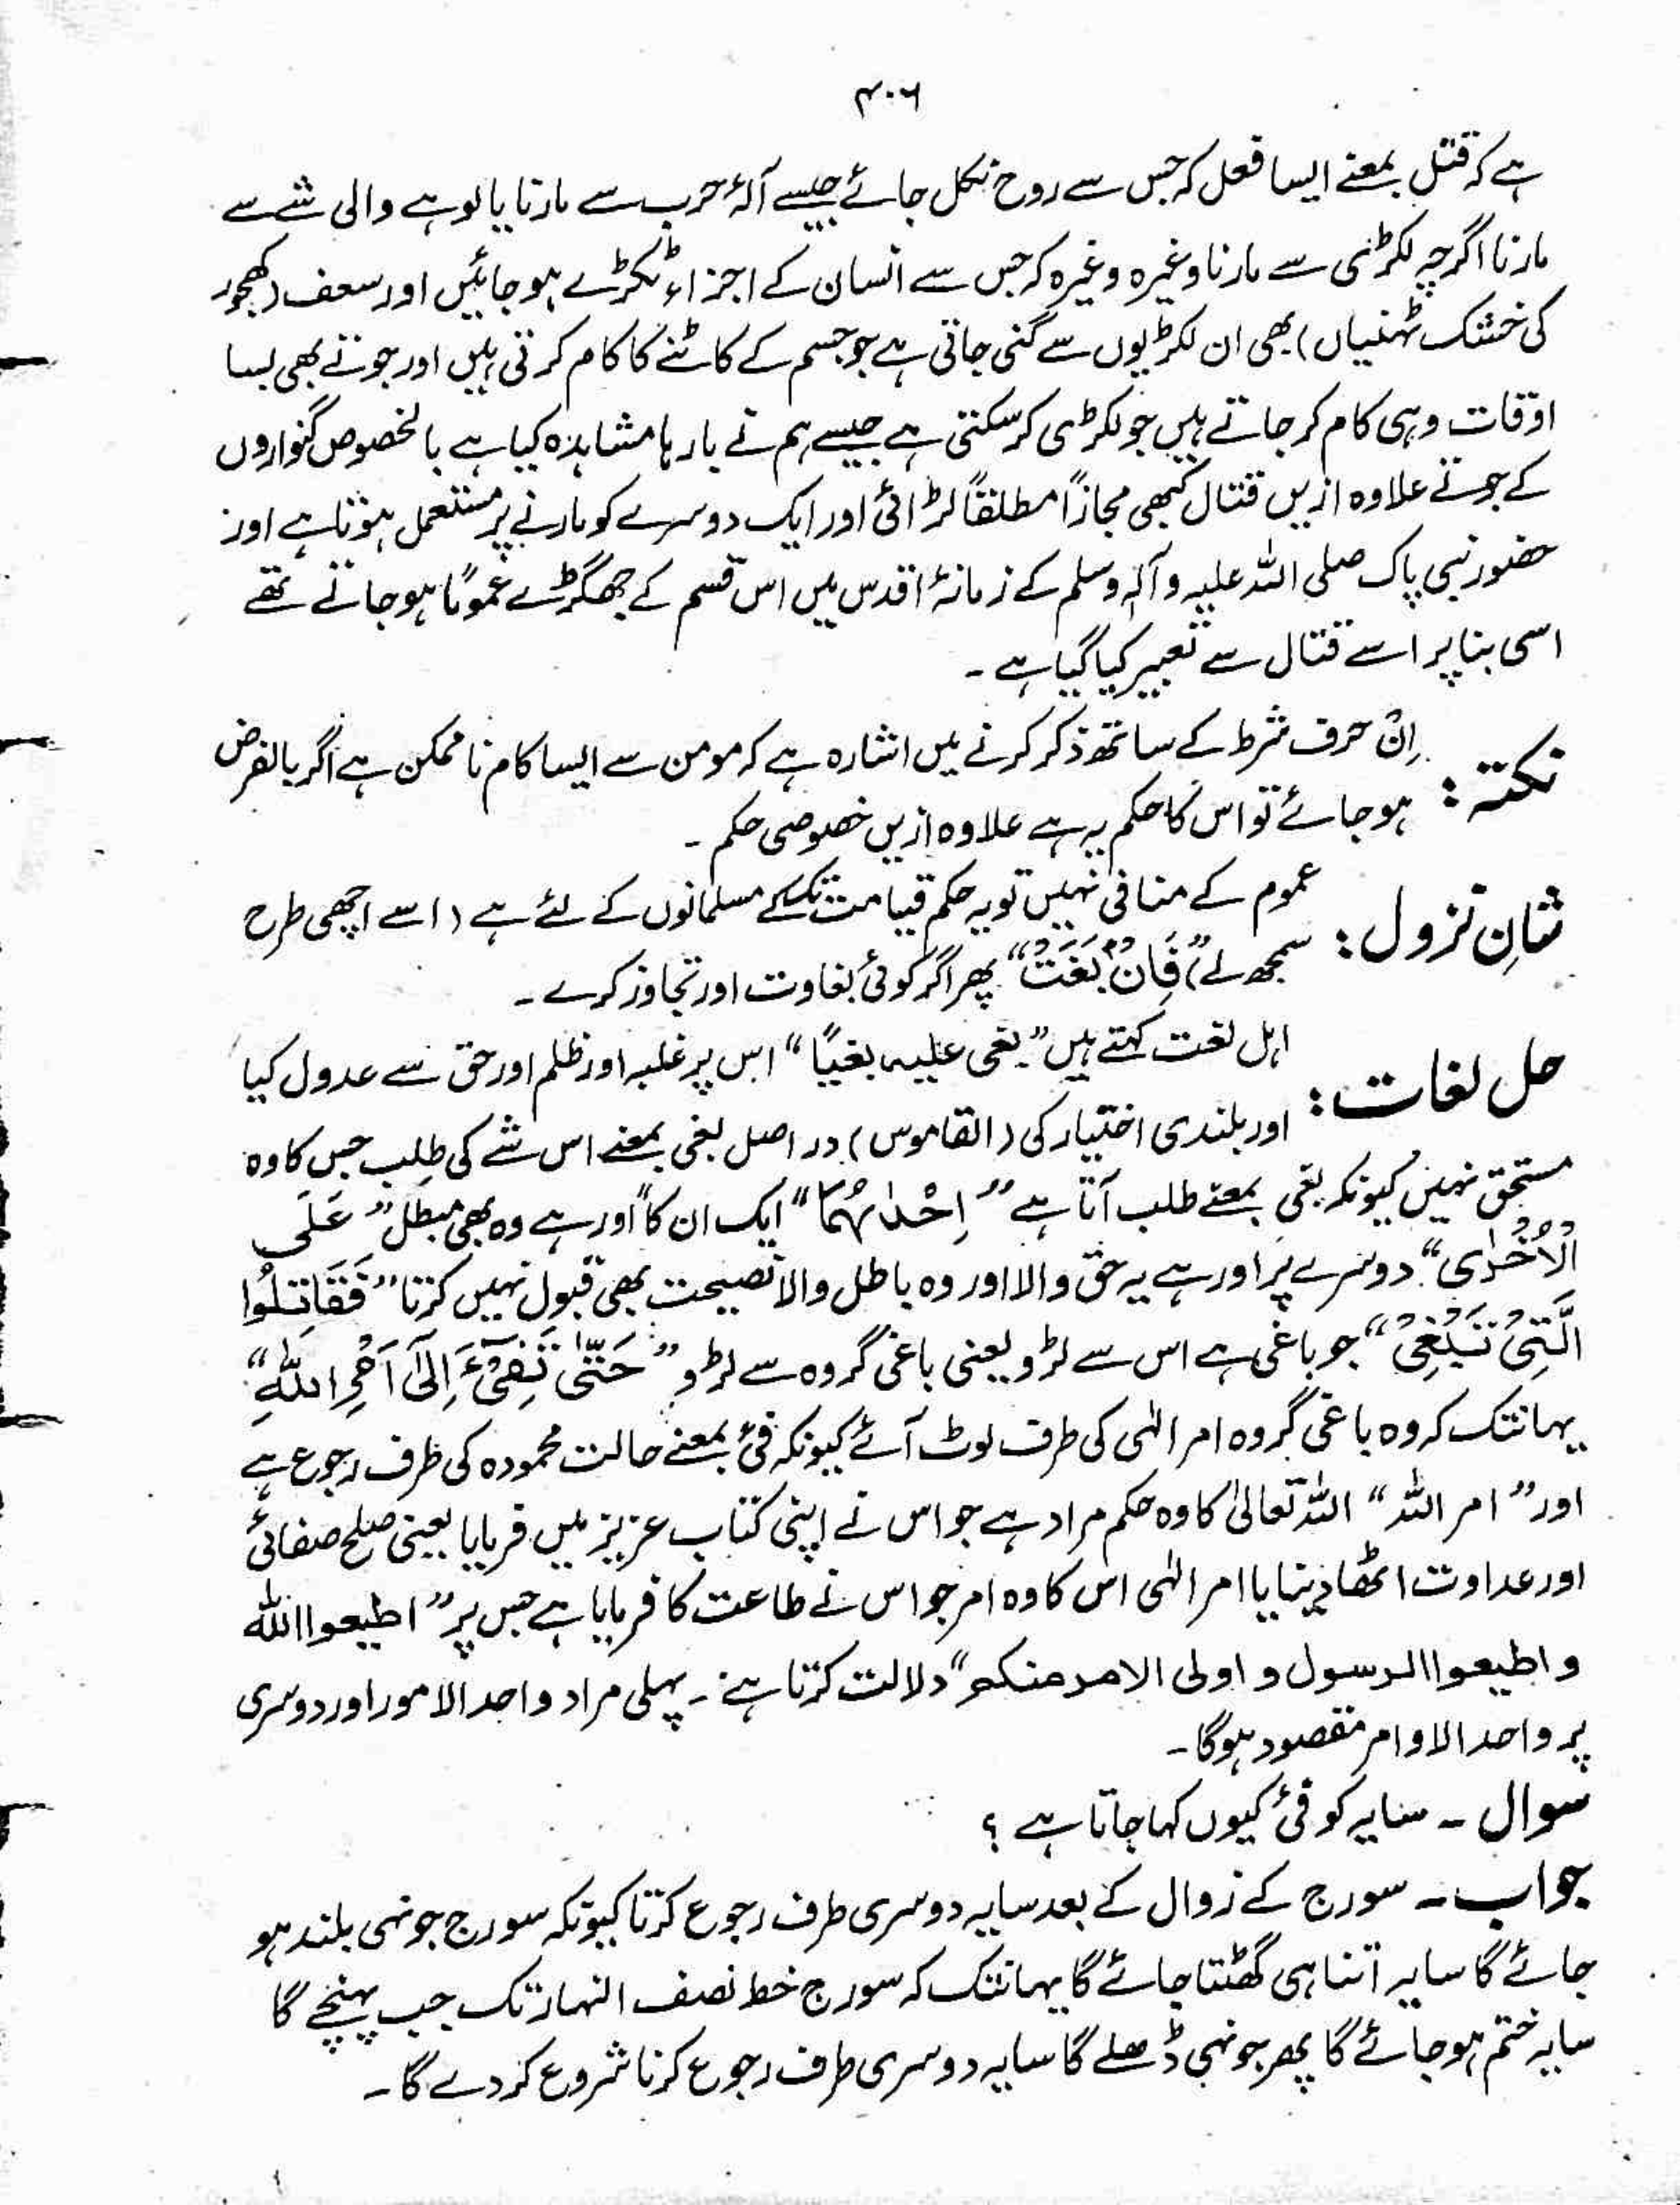 ۴۰۶
ہے کہ قتل بمعنے ایسا فعل کہ جس سے روح نکل جائے جیسے آلۂ حرب سے مارنا یا لوہے والی شے سے
مارنا اگرچہ لکڑی سے مارنا وغیرہ وغیرہ کہ جس سے انسان کے اجزاء ٹکڑے ہو جائیں اور سعف (کھجور
کی خشک ٹہنیاں) بھی ان لکڑیوں سے گنی جاتی ہے جو جسم کے کاٹنے کا کام کرتی ہیں اور جوتے بھی بسا
اوقات وہی کام کر جاتے ہیں جو لکڑی کر سکتی ہے جیسے ہم نے بارہا مشاہدہ کیا ہے بالخصوص گنواروں
کے جوتے علاوہ ازیں قتال کبھی مجازاً مطلقاً لڑائی اور ایک دوسرے کو مارنے پر مستعمل ہوتا ہے اور
حضور نبی پاک صلی اللہ علیہ وآلہٖ وسلم کے زمانۂ اقدس میں اس قسم کے جھگڑے عموماً ہو جاتے تھے
اسی بنا پر اسے قتال سے تعبیر کیا گیا ہے ۔
نکتہ : اِنْ حرف شرط کے ساتھ ذکر کرنے میں اشارہ ہے کہ مومن سے ایسا کام ناممکن ہے اگر بالفرض
ہو جائے تو اس کا حکم یہ ہے علاوہ ازیں خصوصی حکم ۔
شانِ نزول : عموم کے منافی نہیں تو یہ حکم قیامت تک کے مسلمانوں کے لئے ہے (اسے اچھی طرح
سمجھ لے) ”فَاِنْۢ بَغَتْ“ پھر اگر کوئی بغاوت اور تجاوز کرے ۔
حل لغات : اہل لغت کہتے ہیں ”بغی علیہ بغیًا“ اس پر غلبہ اور ظلم اور حق سے عدول کیا
اور بلندی اختیار کی (القاموس) در اصل بغی بمعنے اس شے کی طلب جس کا وہ
مستحق نہیں کیونکہ بغی بمعنے طلب آتا ہے ”اِحْدٰىهُمَا“ ایک ان کا اور ہے وہ بھی مبطل ”عَلَى
الْاُخْرٰى“ دوسرے پر اور ہے یہ حق والا اور وہ باطل والا نصیحت بھی قبول نہیں کرتا ”فَقَاتِلُوا
الَّتِیْ تَبْغِیْ“ جو باغی ہے اس سے لڑو یعنی باغی گروہ سے لڑو ”حَتّٰى تَفِیْٓءَ اِلٰٓى اَمْرِ اللّٰهِ“
یہانتک کہ وہ باغی گروہ امر الٰہی کی طرف لوٹ آئے کیونکہ فیٔ بمعنے حالت محمودہ کی طرف رجوع ہے
اور ”امر اللہ“ اللہ تعالیٰ کا وہ حکم مراد ہے جو اس نے اپنی کتاب عزیز میں فرمایا یعنی صلح صفائی
اور عداوت اٹھا دینا یا امر الٰہی اس کا وہ امر جو اس نے طاعت کا فرمایا ہے جس پر ”اطیعوا اللہ
و اطیعوا الرسول و اولی الامر منکم“ دلالت کرتا ہے ۔ پہلی مراد واحد الامور اور دوسری
پر واحد الاوامر مقصود ہوگا ۔
سوال ۔ سایہ کو فیٔ کیوں کہا جاتا ہے ؟
جواب ۔ سورج کے زوال کے بعد سایہ دوسری طرف رجوع کرتا کیونکہ سورج جونہی بلند ہو
جائے گا سایہ اتنا ہی گھٹتا جائے گا یہانتک کہ سورج خط نصف النہار تک جب پہنچے گا
سایہ ختم ہو جائے گا پھر جونہی ڈھلے گا سایہ دوسری طرف رجوع کرنا شروع کر دے گا ۔